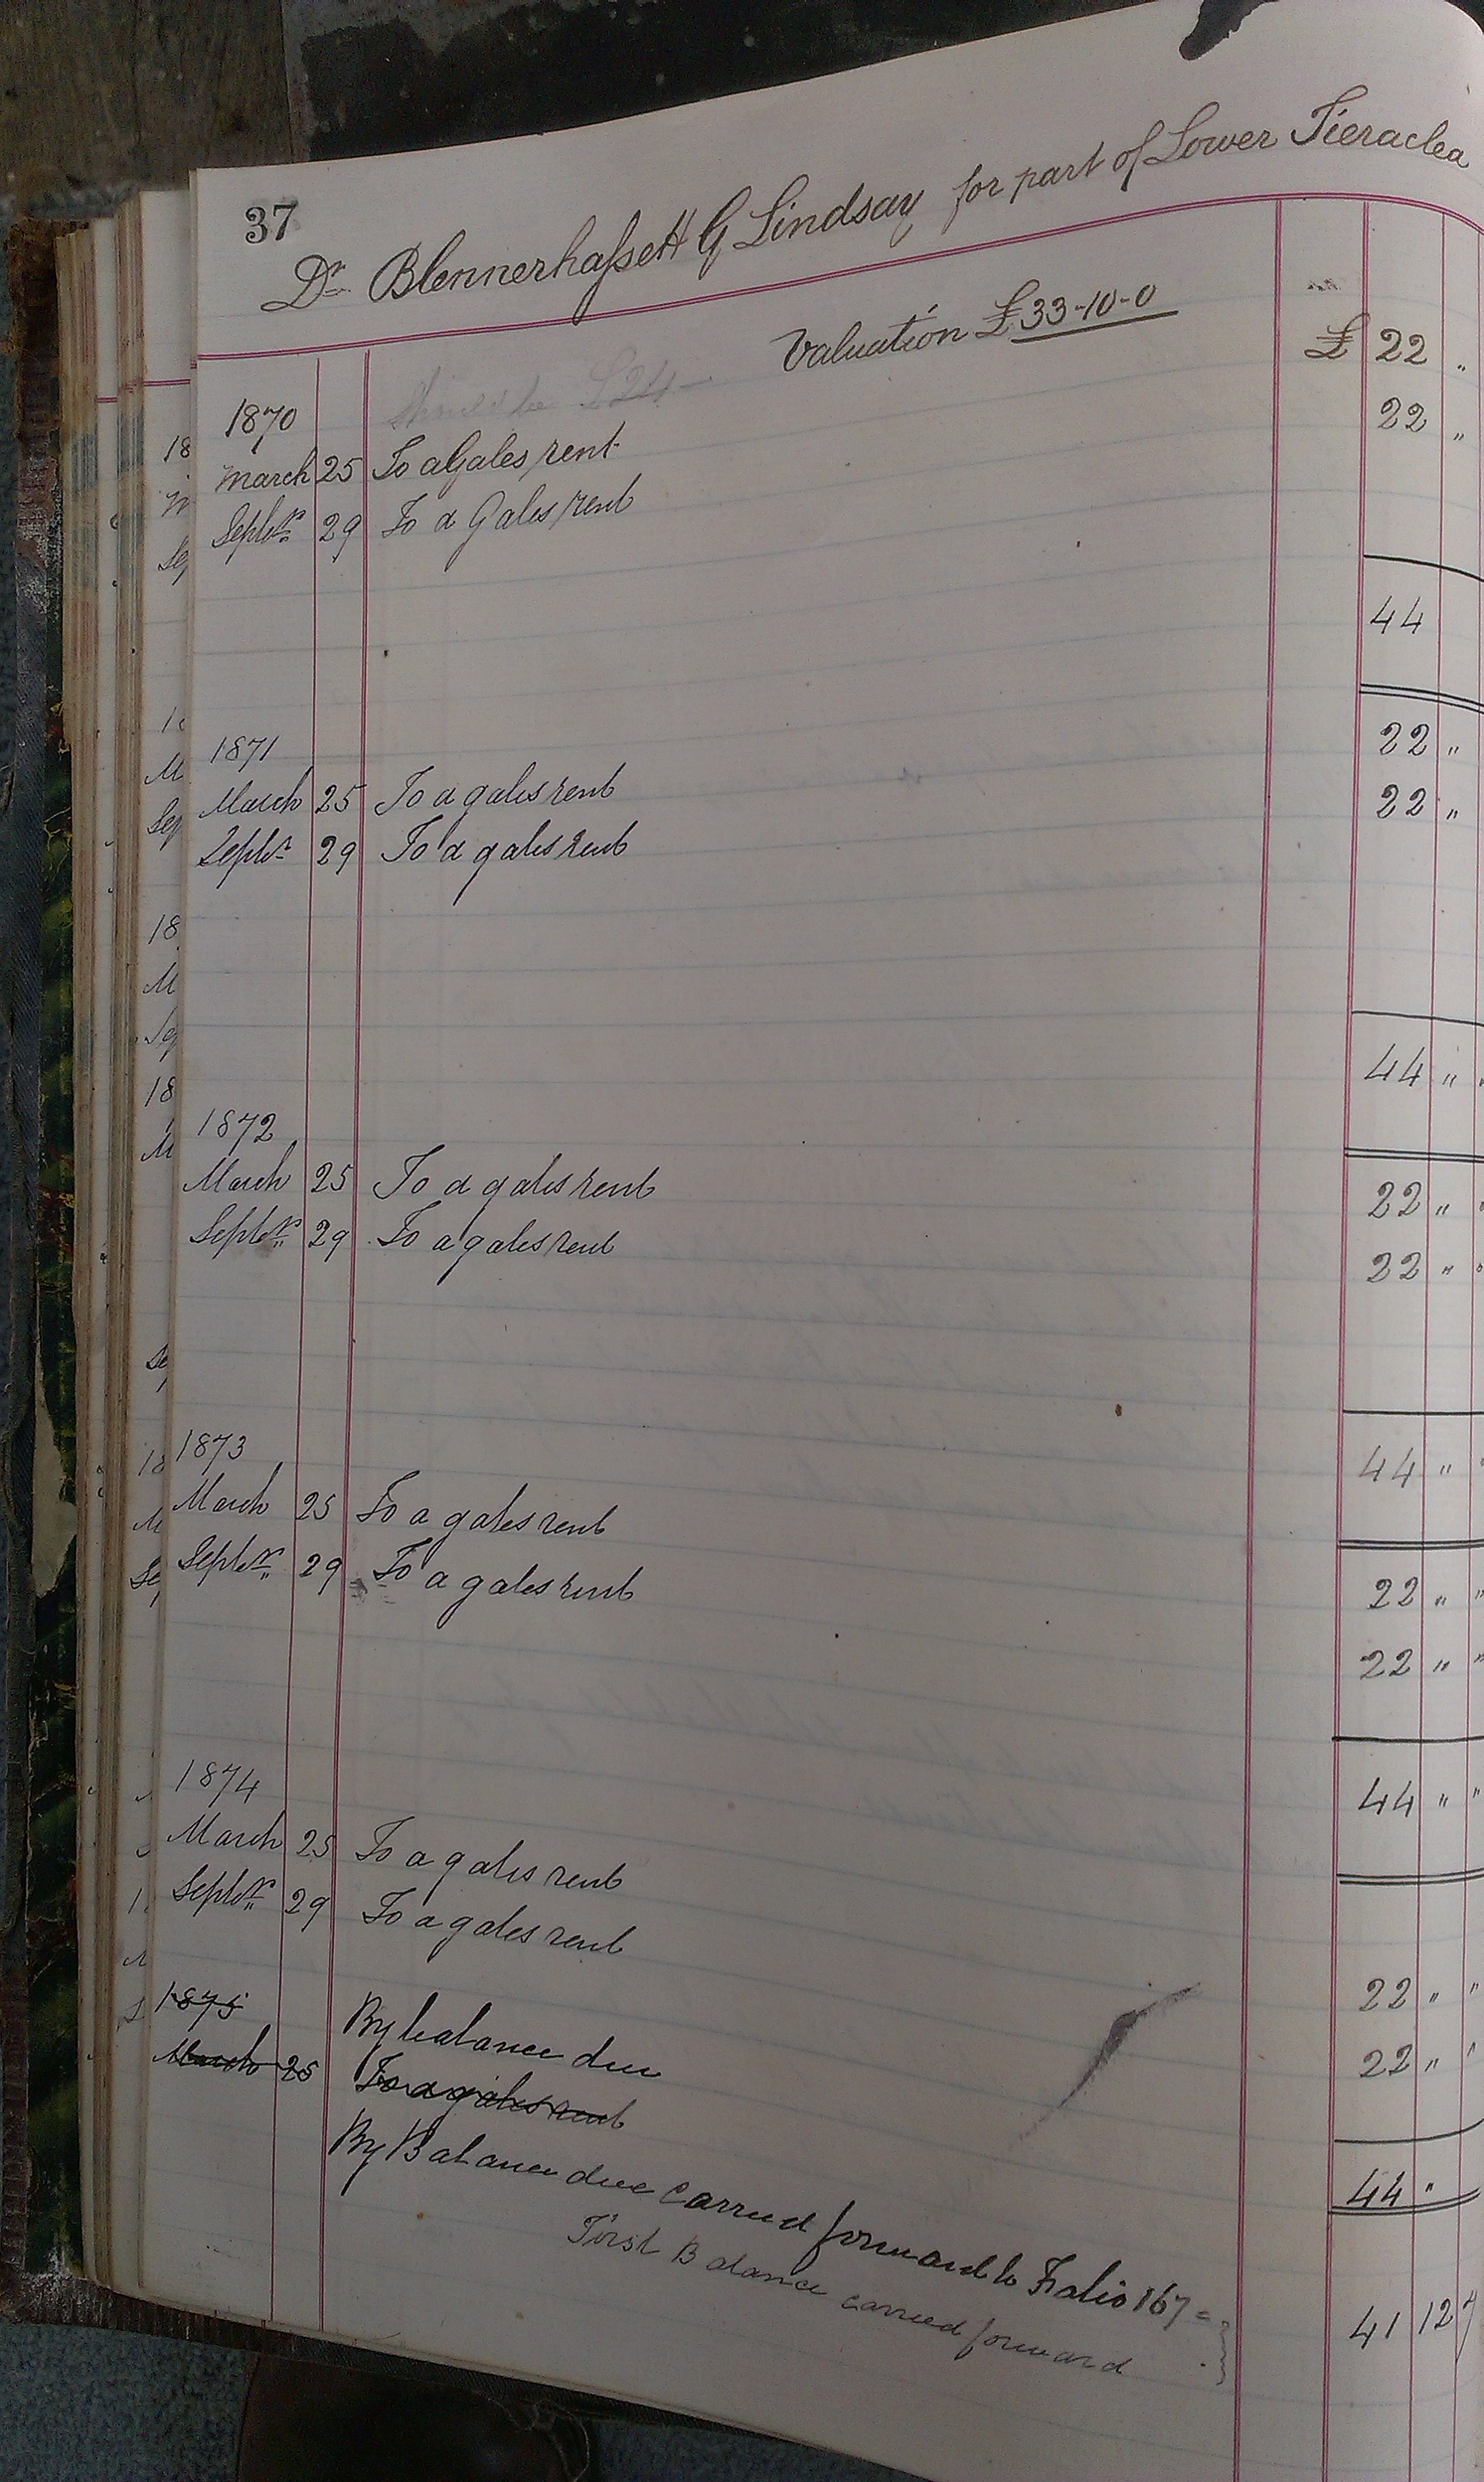 37
Dr Blennerhassett G Lindsay for part of Lower Tieraclea
Valuation £33-10-0
Should be £24 £ 22 "
1870 22 "
March 25 To a Gales rent
Septr 29 To a Gales rent
44
1871 22 "
March 25 To a gales rent 22 "
Septr 29 To a gales rent
44 " "
1872
March 25 To a gales rent 22 " "
Septr 29 To a gales rent 22 " "
44 " "
1873
March 25 To a gales rent 22 " "
Septr 29 To a gales rent 22 " "
44 " "
1874
March 25 To a gales rent 22 " "
Septr 29 To a gales rent 22 " "
44 "
1875 By balance due
March 25 To a gales rent
By Balance due carried forward to Folio 167 = 41 12
First Balance carried forward